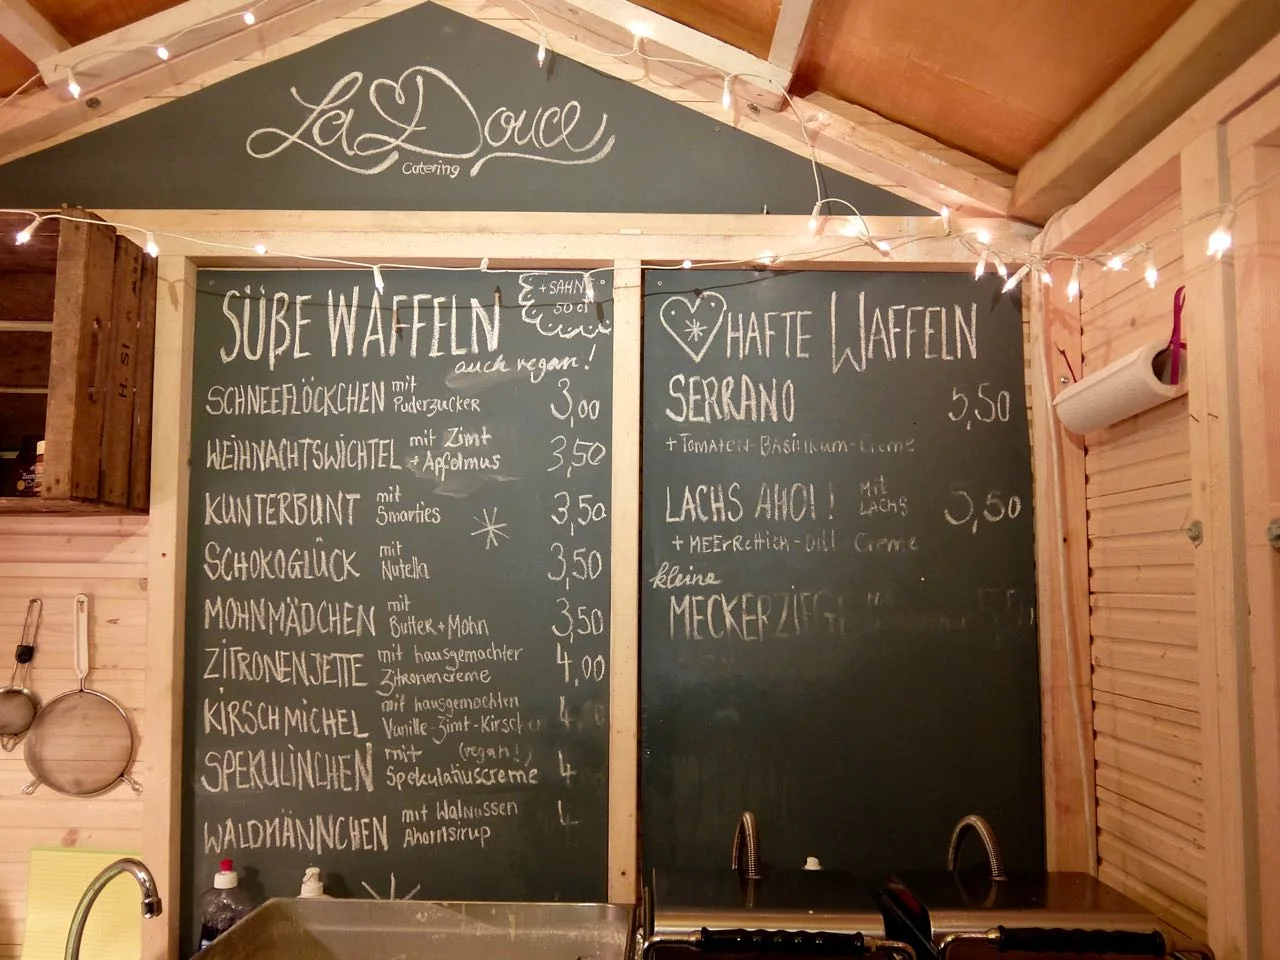 La Douce
Catering
SÜßE WAFFELN
+ SAHNE
50 ct
auch vegan!
SCHNEEFLÖCKCHEN mit Puderzucker 3,00
WEIHNACHTSWICHTEL mit Zimt + Apfelmus 3,50
KUNTERBUNT mit Smarties 3,50
SCHOKOGLÜCK mit Nutella 3,50
MOHNMÄDCHEN mit Butter + Mohn 3,50
ZITRONENJETTE mit hausgemachter Zitronencreme 4,00
KIRSCHMICHEL mit hausgemachten Vanille-Zimt-Kirschen 4
SPEKULINCHEN mit (vegan!) Spekulatiuscreme 4
WALDMÄNNCHEN mit Walnüssen Ahornsirup 4
HAFTE WAFFELN
SERRANO 5,50
+ Tomaten-Basilikum-Creme
LACHS AHOI! Mit LACHS 5,50
+ MEErRettich-Dill Creme
kleine
MECKERZIEGE
H.SI